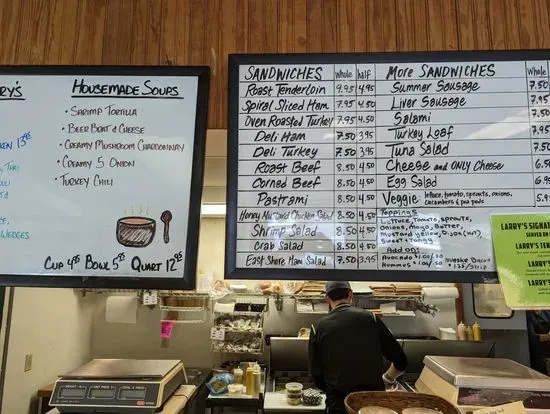 RY'S
KEN 13.95
THAI
WEDGES
HOUSEMADE SOUPS
• SHRIMP TORTILLA
• BEER BRAT & CHEESE
• CREAMY MUSHROOM CHARDONNAY
• CREAMY 5 ONION
• TURKEY CHILI
CUP 4.95 BOWL 5.95 QUART 12.95
SANDWICHES whole half
Roast Tenderloin 9.95 4.95
Spiral Sliced Ham 7.95 4.50
Oven Roasted Turkey 7.95 4.50
Deli Ham 7.50 3.95
Deli Turkey 7.50 3.95
Roast Beef 8.50 4.50
Corned Beef 8.50 4.50
Pastrami 8.50 4.50
Honey Mustard Chicken Salad 8.50 4.50
Shrimp Salad 8.50 4.50
Crab Salad 8.50 4.50
East Shore Ham Salad 7.50 3.95
MORE SANDWICHES Whole
Summer Sausage 7.50
Liver Sausage 7.95
Salami 7.50
Turkey Loaf 7.50
Tuna Salad 7.50
Cheese and ONLY Cheese 6.50
Egg Salad 6.95
Veggie lettuce, tomato, sprouts, onions, cucumbers & pea pods 5.9
Toppings
Lettuce, Tomato, Sprouts,
Onions, Mayo, Butter,
Mustard yellow, Dijon (hot),
Sweet & Tangy
Add on:
Avocado $1.00/.50
Hummus $1.00/.50
Nueske Bacon
$1.25/strip
LARRY'S SIGNAT
SERVED ON
LARRY'S TEN
LARRY'S
LARRY'S